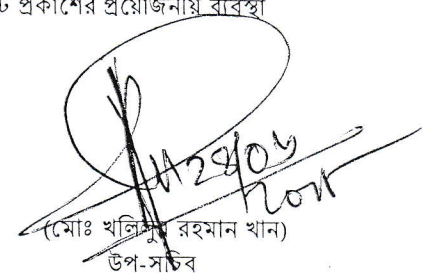 প্রকাশের প্রয়োজনীয় ব্যবস্থা
(মোঃ খলিলুর রহমান খান)
উপ-সচিব